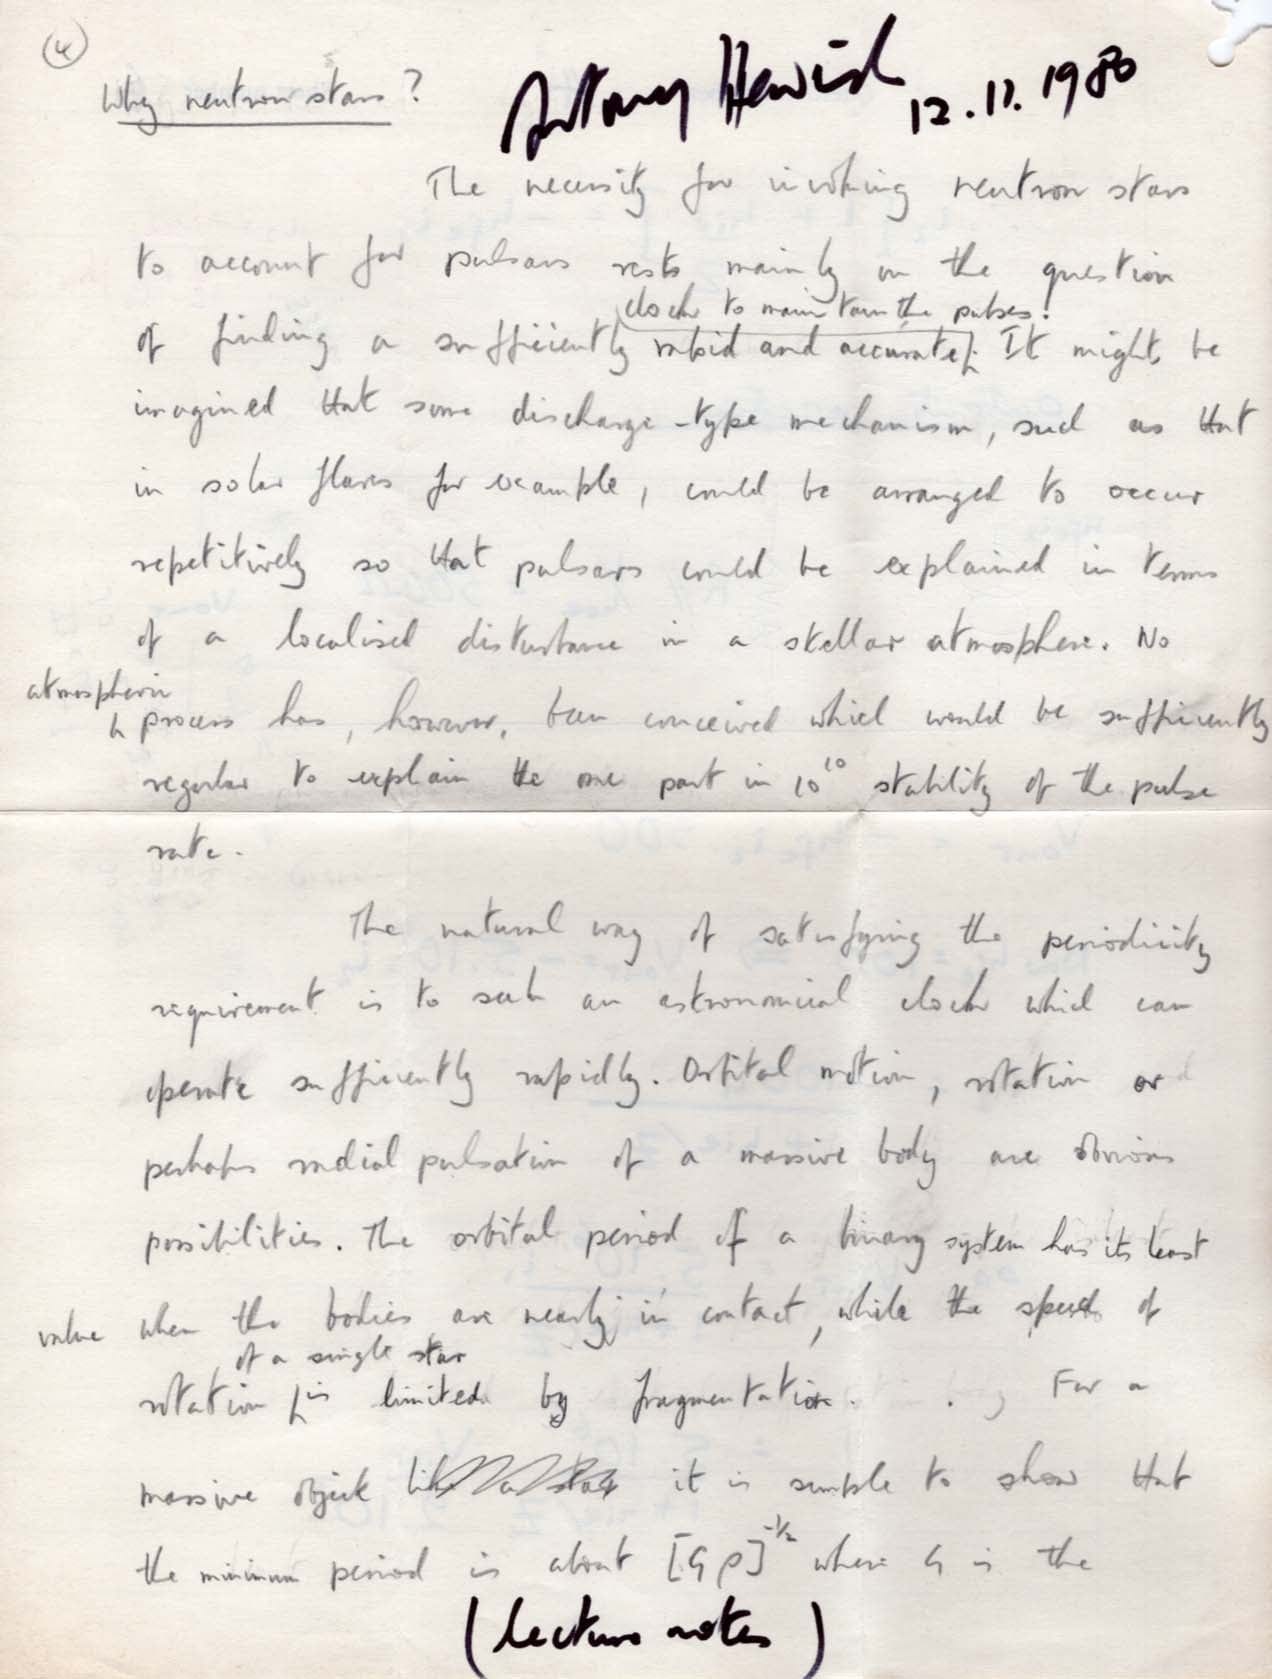 4
Why neutron stars?
Antony Hewish 12.11.1980
The necessity for invoking neutron stars
to account for pulsars rests mainly on the question
clock to maintain the pulses.
of finding a sufficiently rapid and accurate It might be
imagined that some discharge-type mechanism, such as that
in solar flares for example, could be arranged to occur
repetitively so that pulsars could be explained in terms
of a localised disturbance in a stellar atmosphere. No
atmospheric
process has, however, been conceived which would be sufficiently
regular to explain the one part in 10¹⁰ stability of the pulse
rate.
The natural way of satisfying the periodicity
requirement is to seek an astronomical clock which can
operate sufficiently rapidly. Orbital motion, rotation or
perhaps radial pulsation of a massive body are obvious
possibilities. The orbital period of a binary system has its least
value when the bodies are nearly in contact, while the speed of
of a single star
rotation is limited by fragmentation. For a
massive object like a star it is simple to show that
the minimum period is about [Gρ]^-1/2 where G is the
(lecture notes)